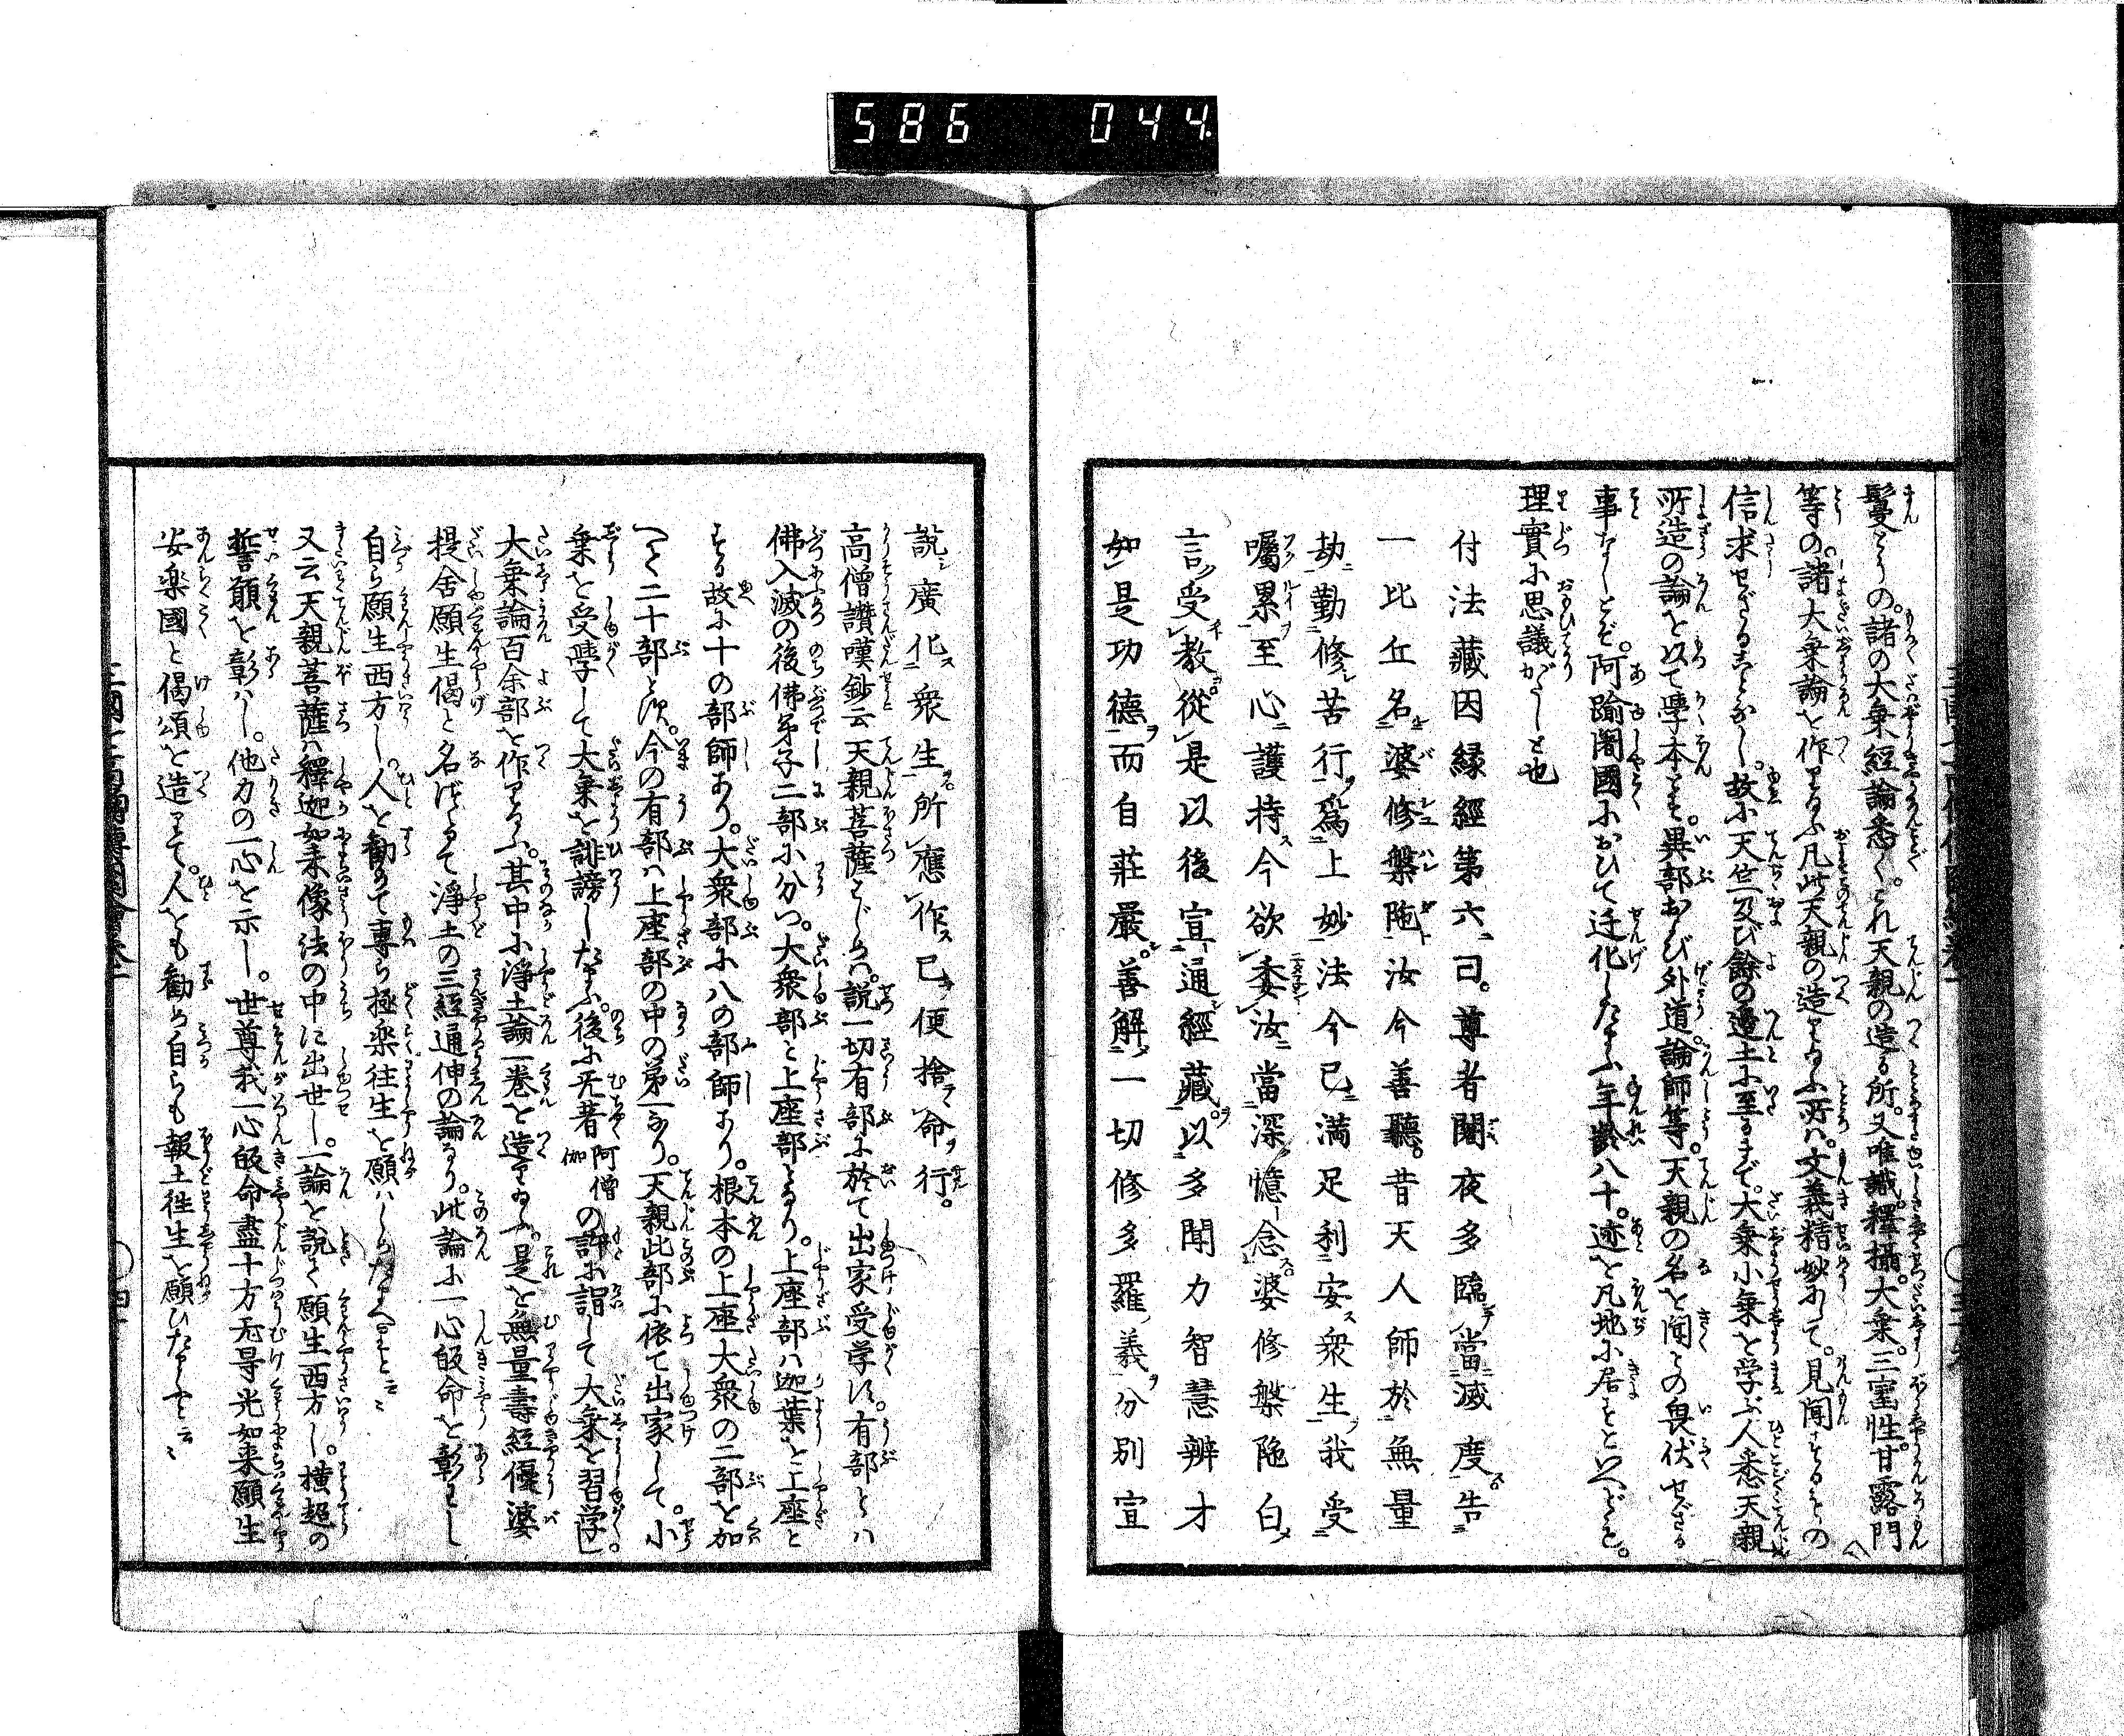 586 044
鬘とうの。諸の大乗経論悉く。これ天親の造る所。又唯識。釋攝。大乗。三宝性。甘露門
等の。諸大乗論を作りたまふ凡此天親の造りたまふ所ハ。文義精妙にして。見聞するもの
信求せざることなし。故に天竺及び餘の邊土に至るまで。大乗小乗を学ぶ人悉天親
所造の論を以て學本とす。異部および外道。論師等。天親の名を聞もの畏伏せざる
事なしとぞ。阿踰闍國において迁化したまふ年齢八十。迹を凡地に居るといへども。
理實に思議がたしと也
付法藏因縁經第六曰。尊者闍夜多臨當滅度告
一比丘名婆修槃陁汝今善聽昔天人師於無量
劫勤修苦行爲上妙法今已満足利安衆生我受
囑累至心護持今欲委汝當深憶念婆修槃陁白
言受教從是以後宣通經藏以多聞力智慧辨才
如是功德而自莊嚴善解一切修多羅義分別宣
說廣化衆生所應作已便捨命行。
高僧讃嘆鈔云天親菩薩はじめハ。説一切有部に於て出家受学す。有部とハ
佛入滅の後佛弟子二部に分つ。大衆部と上座部となり。上座部ハ迦葉を上座と
する故に十の部師あり。大衆部に八の部師あり。根本の上座大衆の二部を加
へて二十部とす。今の有部ハ上座部の中の第一なり。天親此部に依て出家して。小
乗を受學して大乗を誹謗したまふ。後に无著阿僧伽の許に詣して大乗を習学し
大乗論百余部を作りたまふ。其中に淨土論一巻を造りたまふ。是を無量壽経優婆
提舎願生偈と名づけて淨土の三経通伸の論なり。此論に一心皈命を彰ハし
自ら願生西方し。人を勧めて専ら極楽往生を願ハしめたまへりと云々
又云天親菩薩ハ釋迦如来像法の中に出世し。一論を説て願生西方し。横超の
誓願を彰ハし。他力の一心を示し。世尊我一心皈命盡十方无导光如来願生
安楽國と偈頌を造りて。人をも勧め自らも報土往生を願ひたまへりと云々